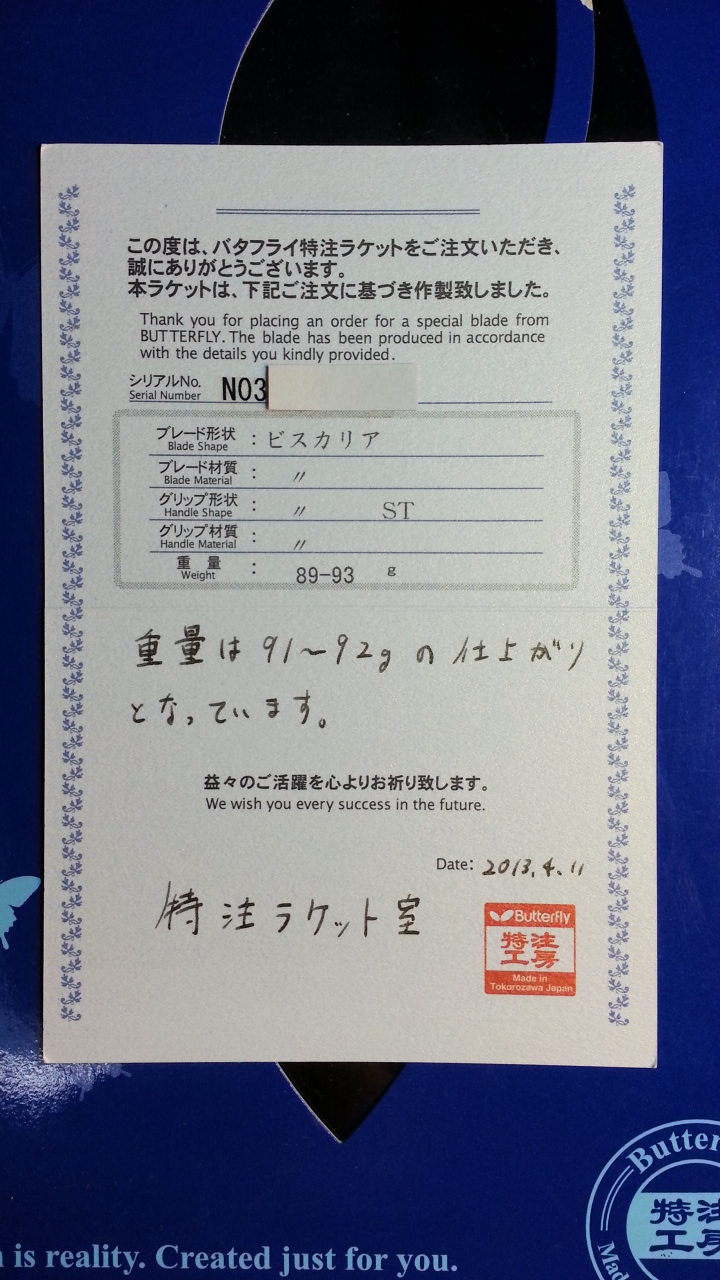 この度は、バタフライ特注ラケットをご注文いただき、
誠にありがとうございます。
本ラケットは、下記ご注文に基づき作製致しました。
Thank you for placing an order for a special blade from
BUTTERFLY. The blade has been produced in accordance
with the details you kindly provided.
シリアルNo.
Serial Number
N03
ブレード形状
Blade Shape
: ビスカリア
ブレード材質
Blade Material
: 〃
グリップ形状
Handle Shape
: 〃 ST
グリップ材質
Handle Material
: 〃
重量
Weight
: 89-93 g
重量は91〜92gの仕上がり
となっています。
益々のご活躍を心よりお祈り致します。
We wish you every success in the future.
Date: 2013.4.11
特注ラケット室
Butterfly
特注
工房
Made in
Tokorozawa Japan
Butter
特注
工房
Mad
is reality. Created just for you.